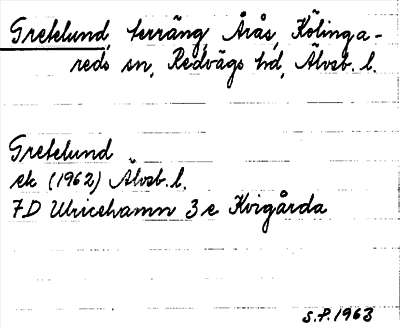 Gretelund, terräng, Årås, Kölinga-
reds sn, Redvägs hd, Älvsb. l.
Gretelund
ek (1962) Älvsb. l.
7D Ulricehamn 3 e Kvigårda
S.P. 1963